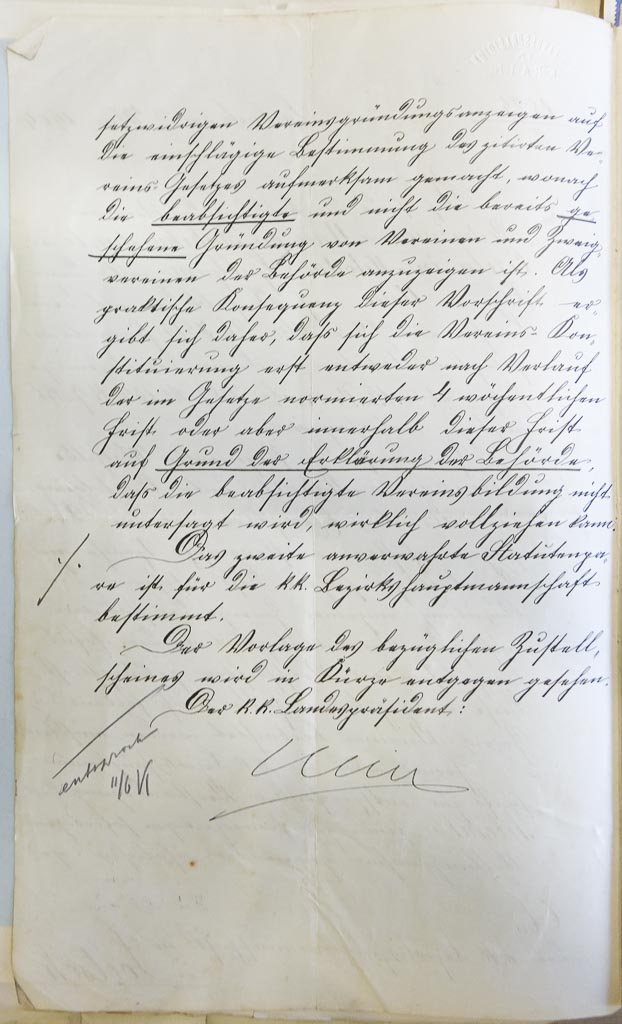 setzwidrigen Vereinsgründungsanzeigen auf
die einschlägige Bestimmung des zitirten Ve-
reins-Gesetzes aufmerksam gemacht, wonach
die beabsichtigte und nicht die bereits ge-
schehene Gründung von Vereinen und Zweig-
vereinen der Behörde anzuzeigen ist. Als
praktische Konsequenz dieser Vorschrift er-
gibt sich daher, dass sich die Vereins-Kon-
stituierung erst entweder nach Verlauf
der im Gesetze normierten 4 wöchentlichen
Frist oder aber innerhalb dieser Frist
auf Grund der Erklärung der Behörde,
dass die beabsichtigte Vereinsbildung nicht
untersagt wird, wirklich vollziehen kann.
./. Das zweite anverwahrte Statutenpa-
re ist für die kk. Bezirkshauptmannschaft
bestimmt.
Der Vorlage des bezüglichen Zustell-
scheines wird in Kürze entgegen gesehen.
Der k.k. Landespräsident:
Hein
11/6 VI